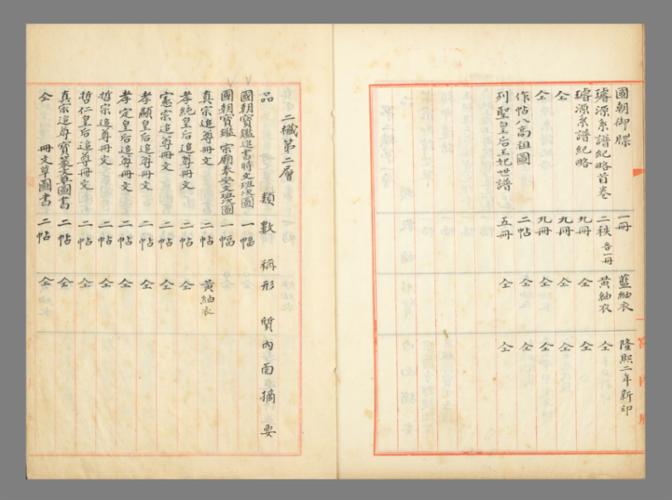 國朝御牒 一冊 藍紬衣 隆熙二年新印
璿源系譜紀略首卷 二秩 各一冊 黃紬衣 仝
璿源系譜紀略 九冊 仝 仝
仝 九冊 仝 仝
仝 九冊 仝 仝
作帖八高祖圖 二帖 仝 仝
列聖皇后王妃世譜 五冊 仝 仝
二欌第二層
品類 數稱 形質 內面摘要
國朝寶鑑進書時文班次圖 一幅
國朝寶鑑 宗廟奉安文班次圖 一幅
真宗追尊冊文 二帖 黃紬衣
孝純皇后追尊冊文 二帖 仝
憲宗追尊冊文 二帖 仝
孝顯皇后追尊冊文 二帖 仝
孝定皇后追尊冊文 二帖 仝
哲宗追尊冊文 二帖 仝
哲仁皇后追尊冊文 二帖 仝
真宗追尊寶篆文草圖書 二帖 仝
仝 冊文草圖書 二帖 仝